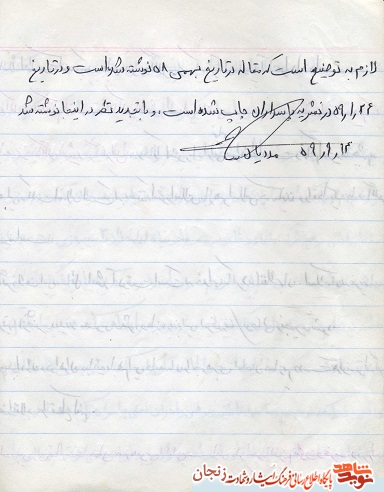 لازم به توضیح است که مقاله در تاریخ بهمن ۵۸ نوشته شده است و در تاریخ
۵۹/۱/۲۶ در نشریه پاسداران چاپ شده است، و با تجدید نظر در اینجا نوشته شد
۵۹/۹/۱۳
نوید شاهد
پایگاه اطلاع رسانی فرهنگ ایثار و شهادت زنجان